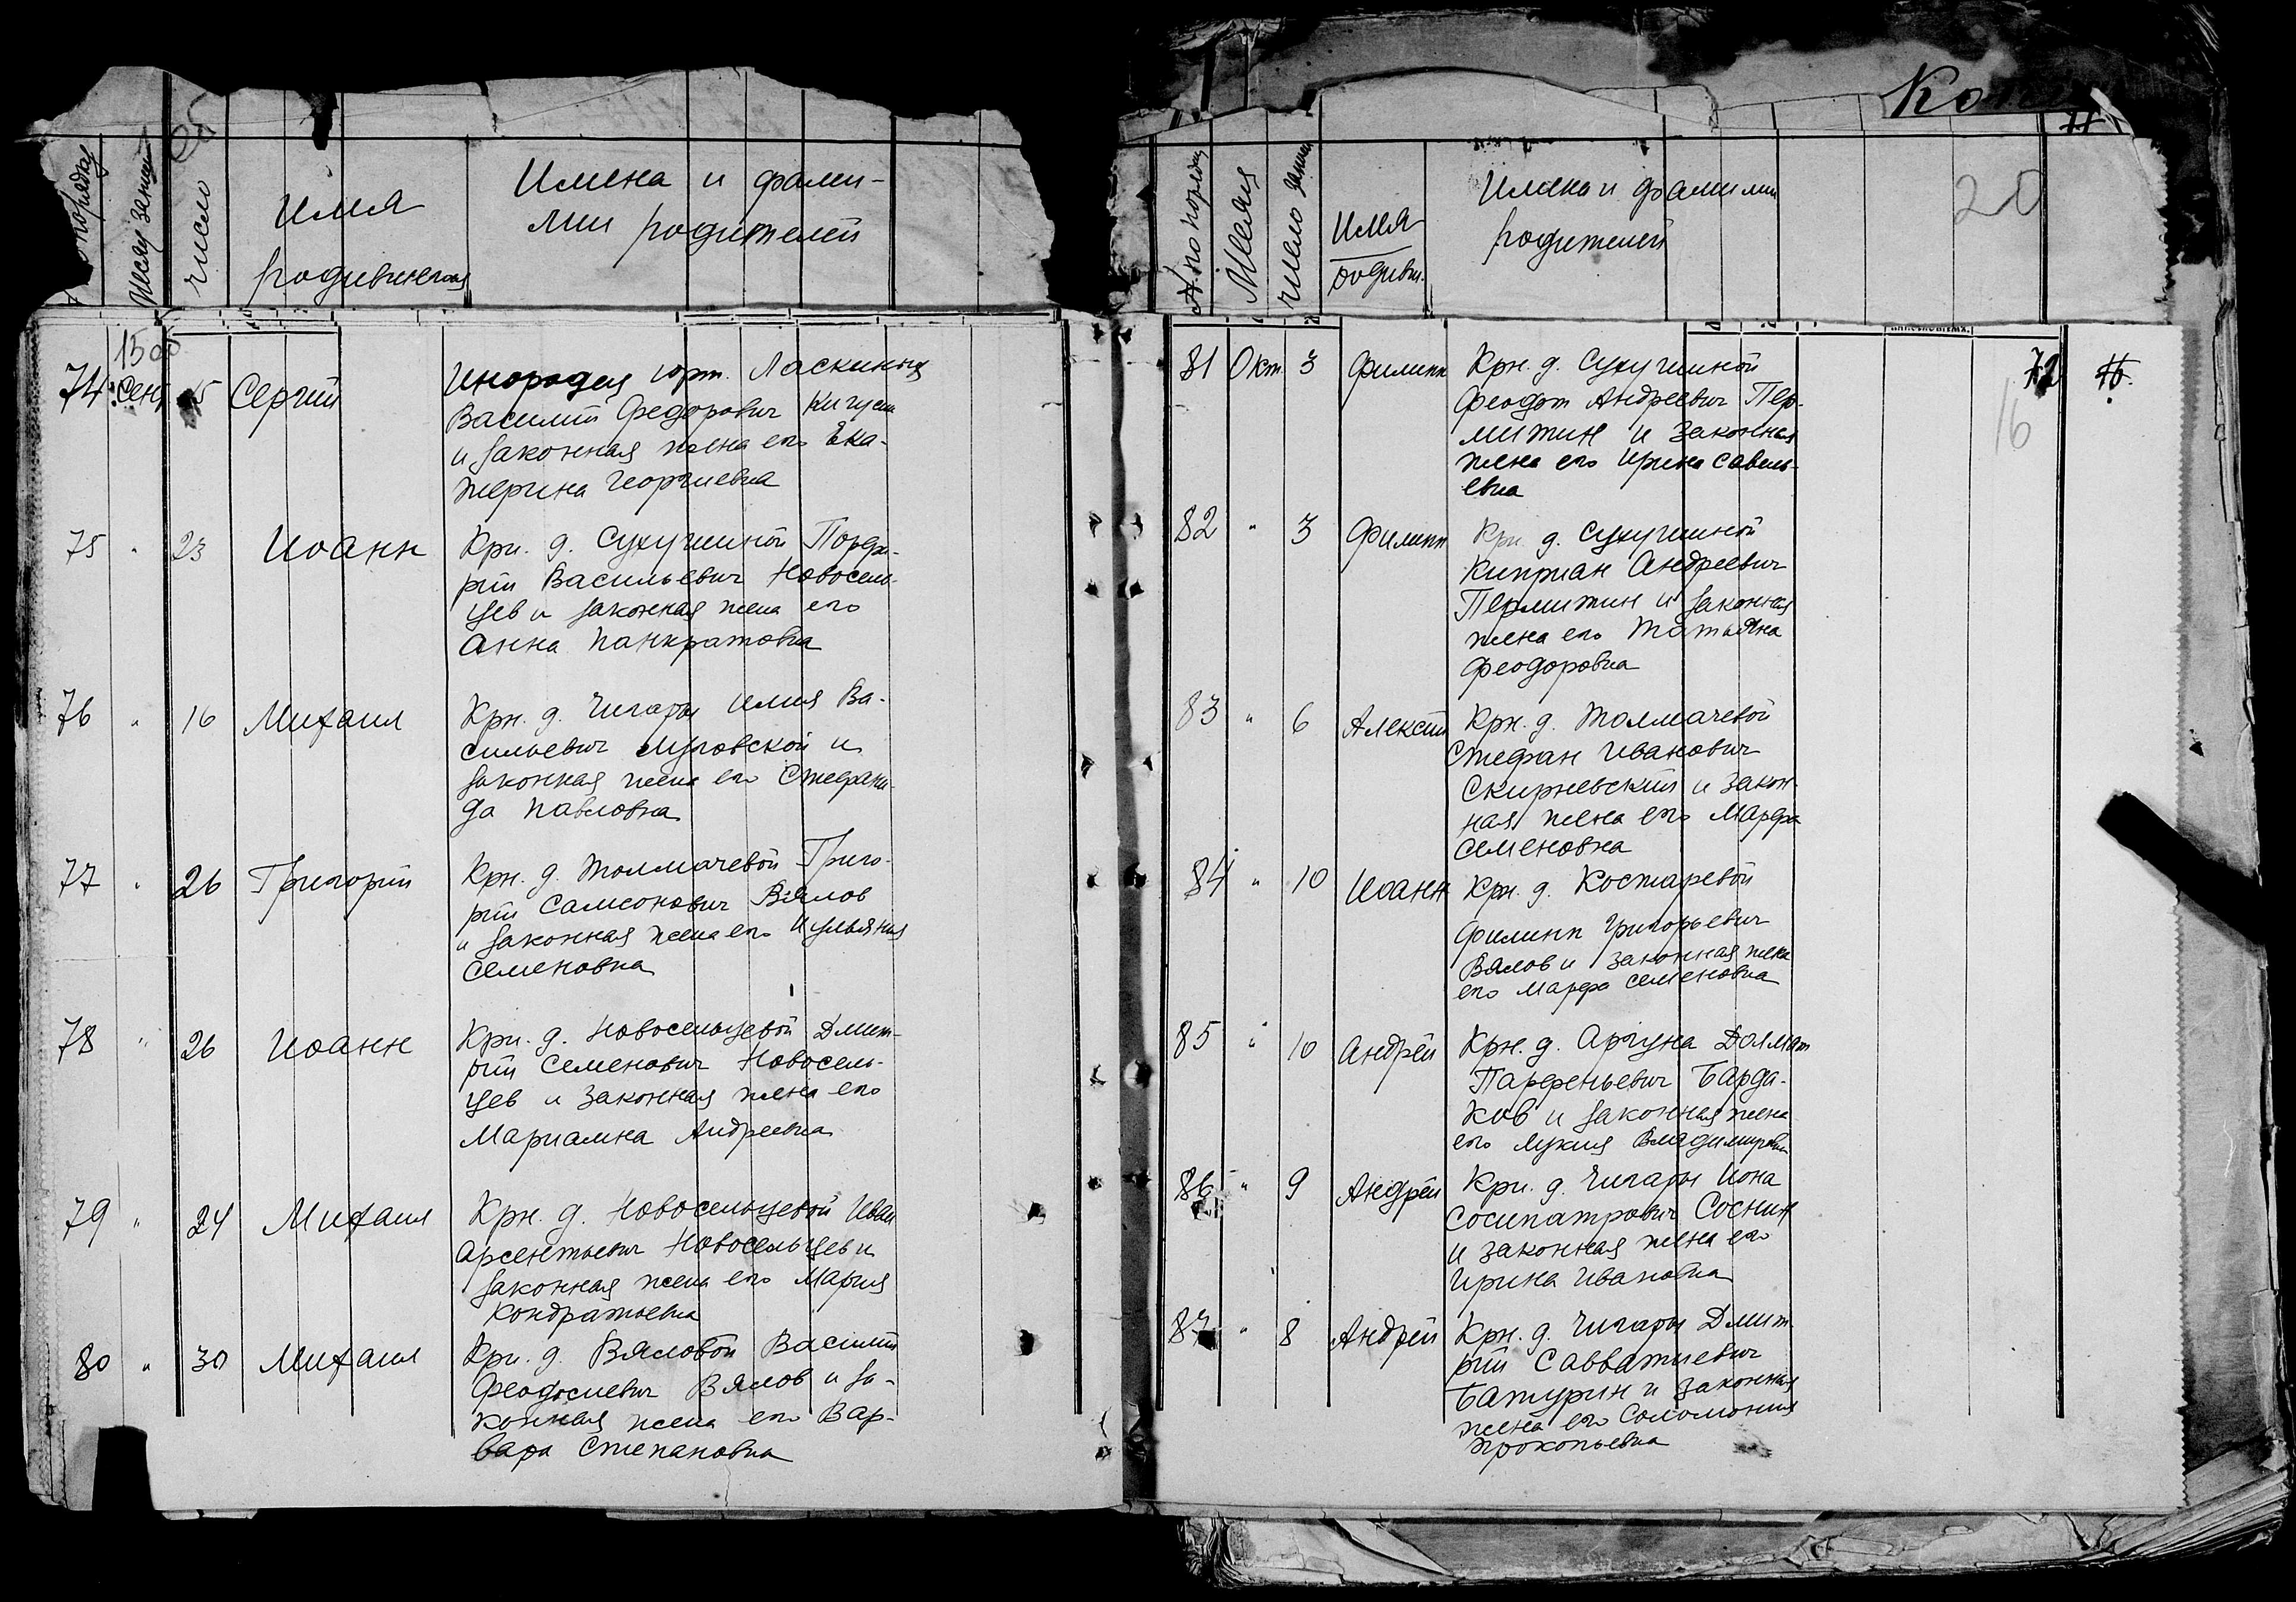 Копия
11
об
по порядку
Месяц записи
число
Имя
родившегося
Имена и фами-
лии родителей
15 об
74 Сент. 15 Сергий
Инородец юрт. Ласкиных
Василий Федорович
и законная жена его Ека-
терина Георгиевна
75 " 23 Иоанн
Крн. д. Сухушиной Порфи-
рий Васильевич Новосель-
цев и законная жена его
Анна Панкратовна
76 " 16 Михаил
Крн. д. Чигары Илия Ва-
сильевич Луговской и
законная жена его Стефани-
да Павловна
77 " 26 Григорий
Крн. д. Толмачевой Григо-
рий Самсонович Вялов
и законная жена его Иулияния
Семеновна
78 " 26 Иоанн
Крн. д. Новосельцевой Дмит-
рий Семенович Новосель-
цев и законная жена его
Мариамна Андреевна
79 " 24 Михаил
Крн. д. Новосельцевой Иван
Арсентьевич Новосельцев и
законная жена его Мария
Кондратьевна
80 " 30 Михаил
Крн. д. Вяловой Василий
Феодосиевич Вялов и за-
конная жена его Вар-
вара Степановна
№ по порядку
Месяц
число записи
Имя
родивш.
Имена и фамилии
родителей
20
81 Окт. 3 Филипп
Крн. д. Сухушиной
Феодот Андреевич Пер-
митин и законная
жена его Ирина Савель-
евна
72
16
82 " 3 Филипп
Крн. д. Сухушиной
Киприан Андреевич
Пермитин и законная
жена его Татьяна
Феодоровна
83 " 6 Алексий
Крн. д. Толмачевой
Стефан Иванович
Скирневский и закон-
ная жена его Марфа
Семеновна
84 " 10 Иоанн
Крн. д. Костаревой
Филипп Григорьевич
Вялов и законная жена
его Марфа Семеновна
85 " 10 Андрей
Крн. д. Аргуна Далмат
Парфеньевич Барда-
ков и законная жена
его Лукия Владимировна
86 " 9 Андрей
Крн. д. Чигары Иона
Сосипатрович Соснин
и законная жена его
Ирина Ивановна
87 " 8 Андрей
Крн. д. Чигары Дмит-
рий Савватиевич
Батурин и законная
жена его Соломония
Прокопьевна